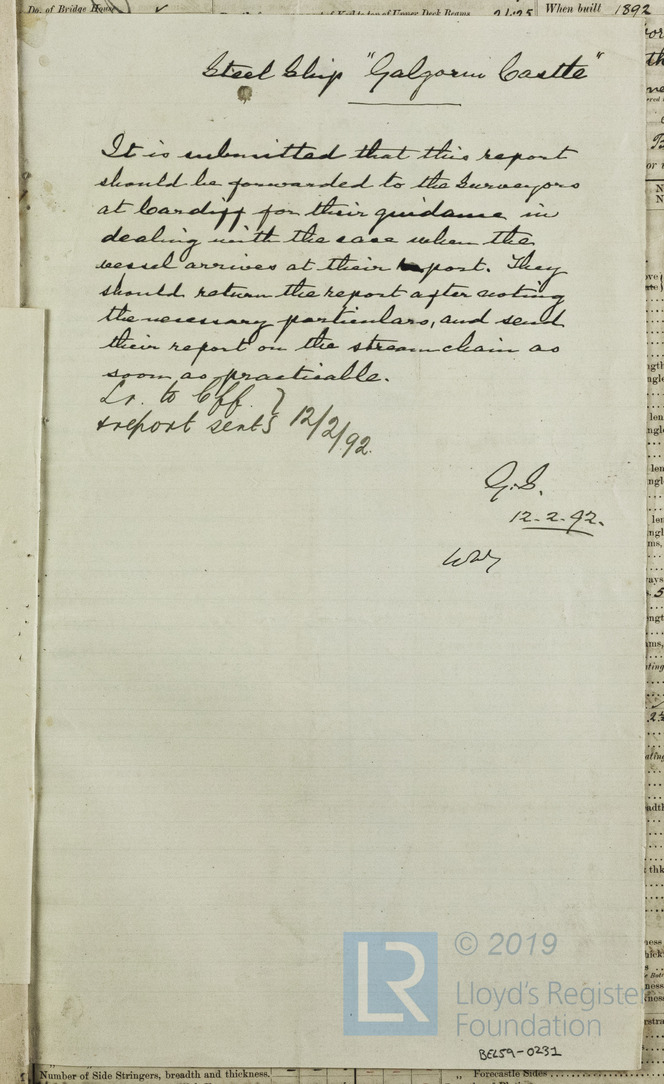 Do. of Bridge House
of Upper Deck Beams 21.25
When built 1892
Steel Ship "Galgorm Castle"
It is submitted that this report
should be forwarded to the Surveyors
at Cardiff for their guidance in
dealing with the case when the
vessel arrives at their port. They
should return the report after noting
the necessary particulars, and send
their report on the stream chain as
soon as practicable.
Lr. to Cff. }
& report sent } 12/2/92.
G.S.
12-2-92.
© 2019
LR
Lloyd's Register
Foundation
BEL59-0231
Number of Side Stringers, breadth and thickness.
Forecastle Sides